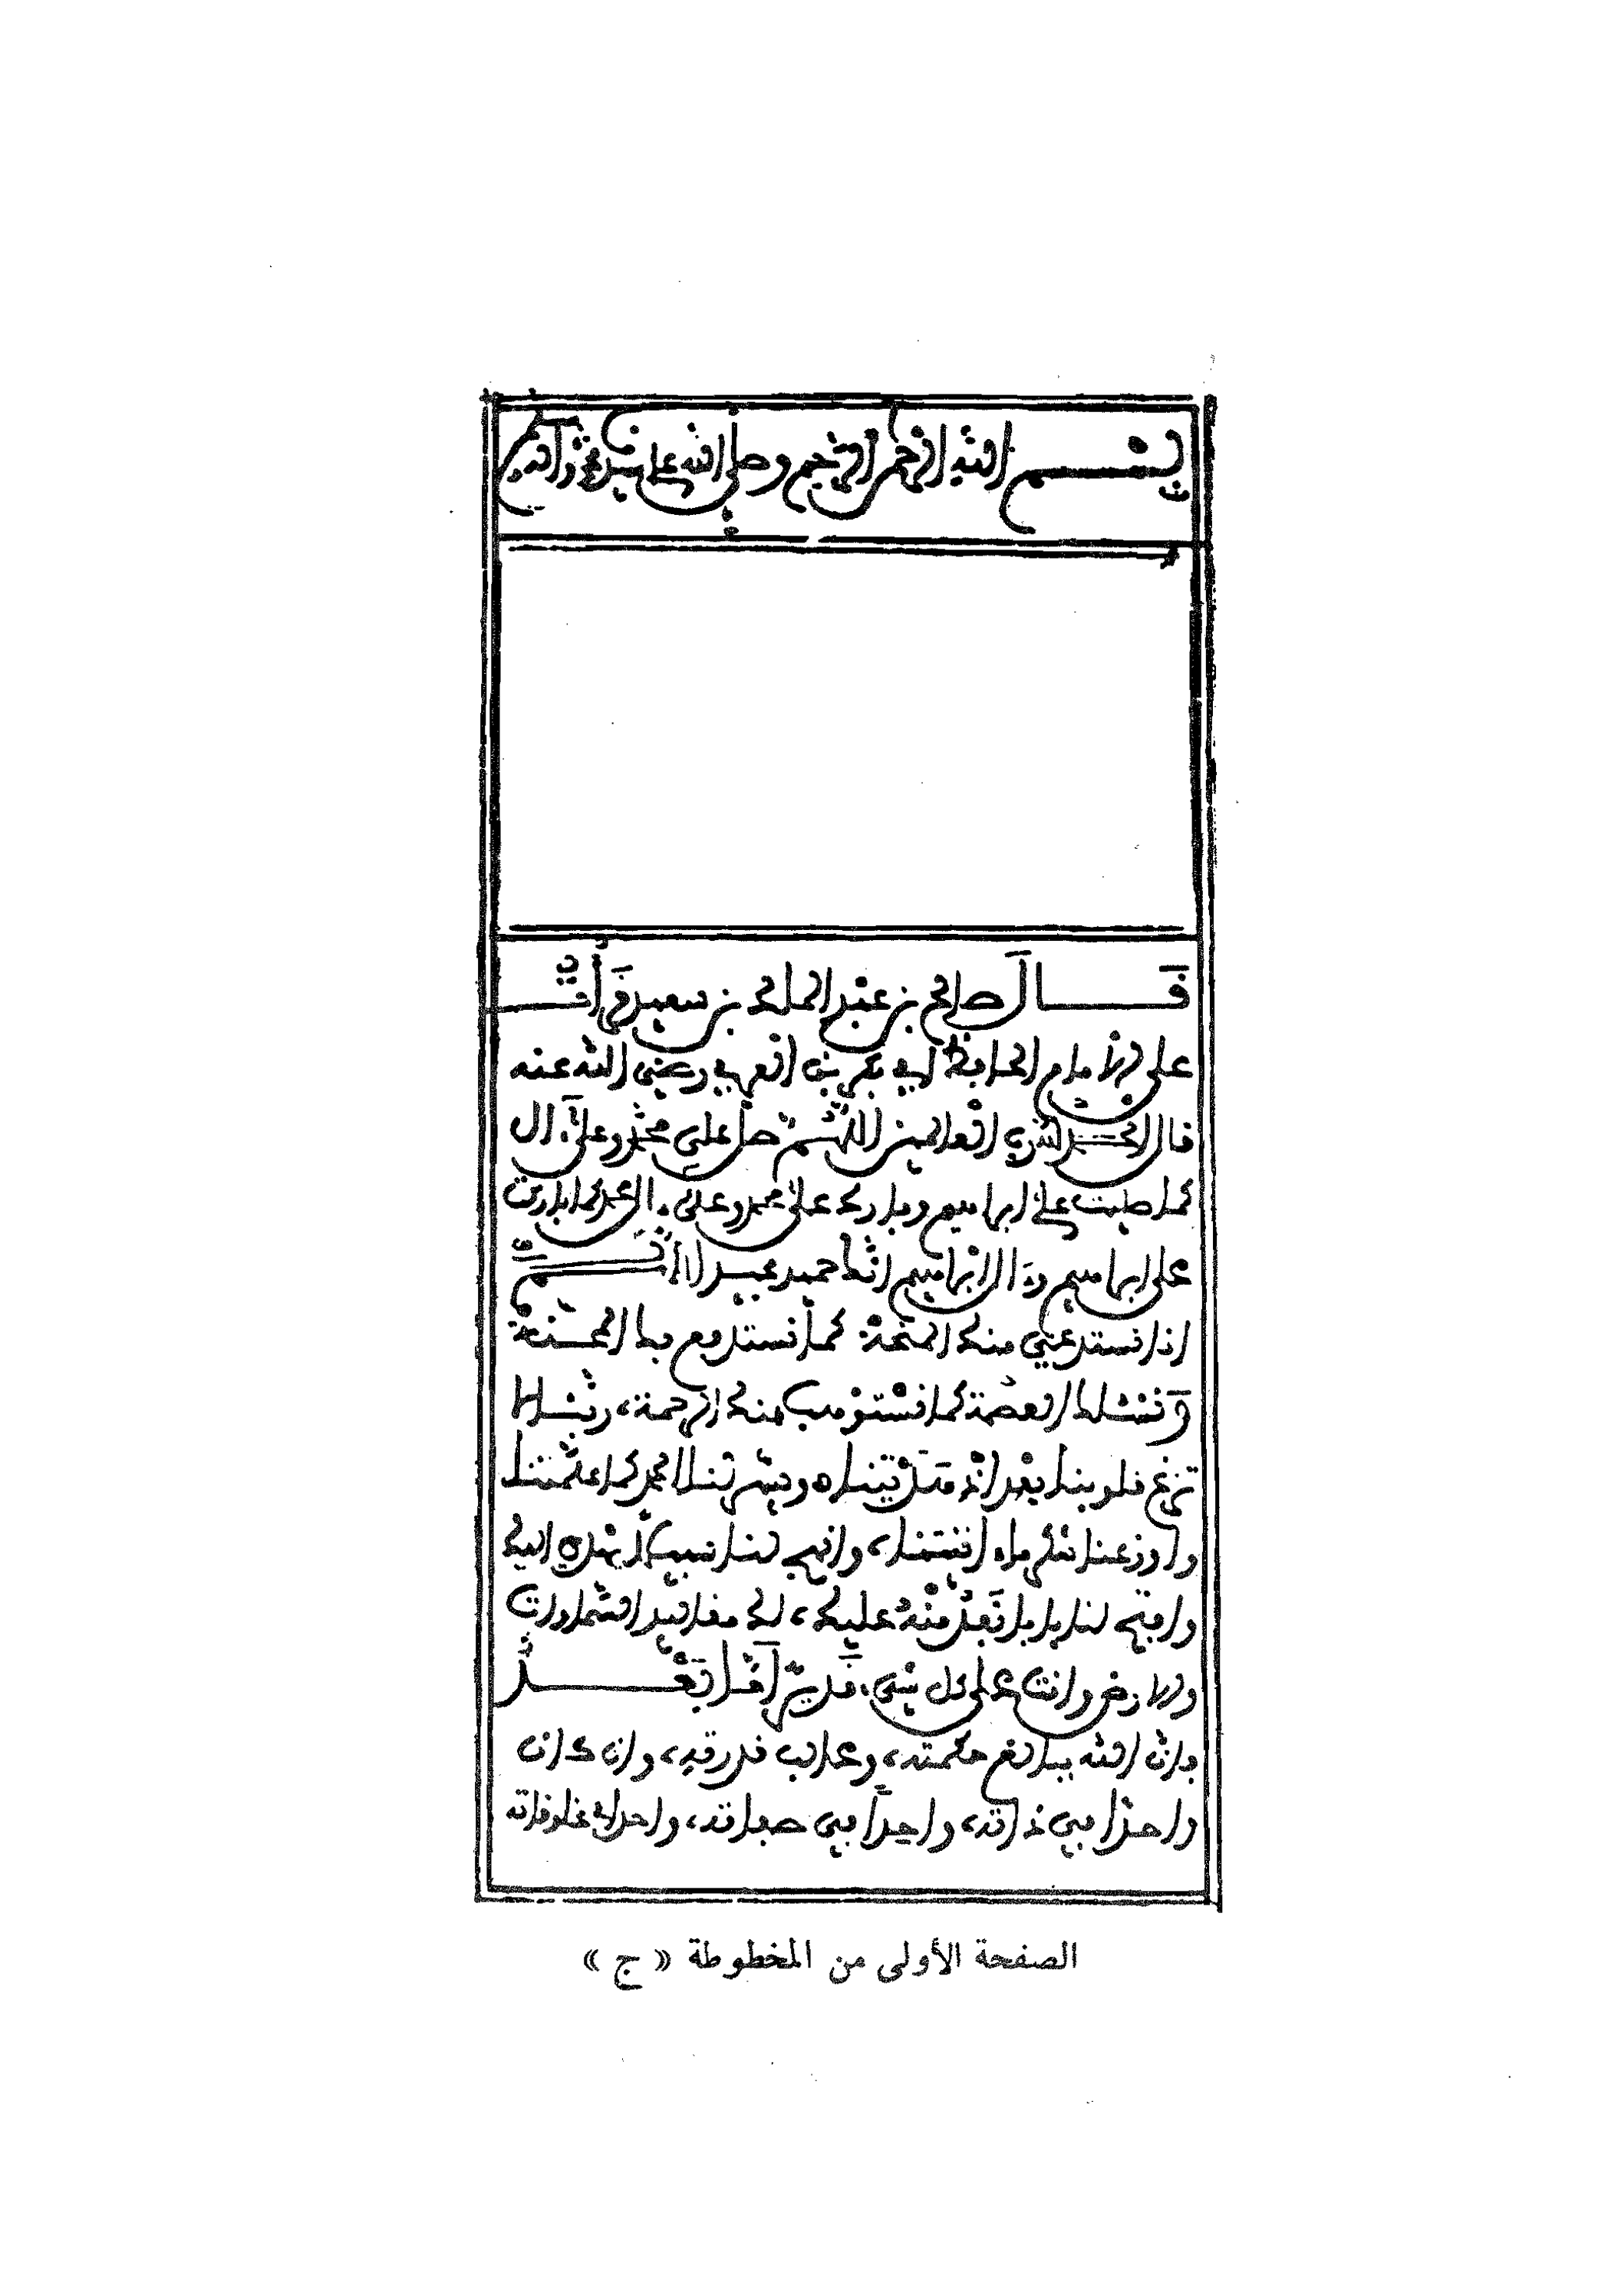 بسم الله الرحمن الرحيم وصلى الله على سيدنا محمد وآله وسلم
قال صالح بن عبد الملك بن سعيد قرأت
على الإمام الحافظ أبي بكر بن العربي رضي الله عنه
قال الحمد لله رب العالمين اللهم صل على محمد وعلى آل
كما صليت على إبراهيم وبارك على محمد وعلى آل محمد كما باركت
على إبراهيم وآل إبراهيم إنك حميد مجيد اللهم
إنا نستدعي منك المنحة كما نستدفع بك المحنة
ونسئلك العصمة كما نستوهب منك الرحمة، ربنا لا
تزغ قلوبنا بعد إذ هديتنا ويسر لنا العمل كما علمتنا
وأوزعنا شكر ما آتيتنا، وانهج لنا سبيلا يهدي إليك
وافتح لنا بابا نفد منه عليك، لك مقاليد السماوات
والأرض وأنت على كل شيء قدير أما بعد
فإن الله ببالغ حكمته، وغالب قدرته، وإن كان
واحدا في ذاته، واحدا في صفاته، واحدا في مخلوقاته
الصفحة الأولى من المخطوطة « ج »